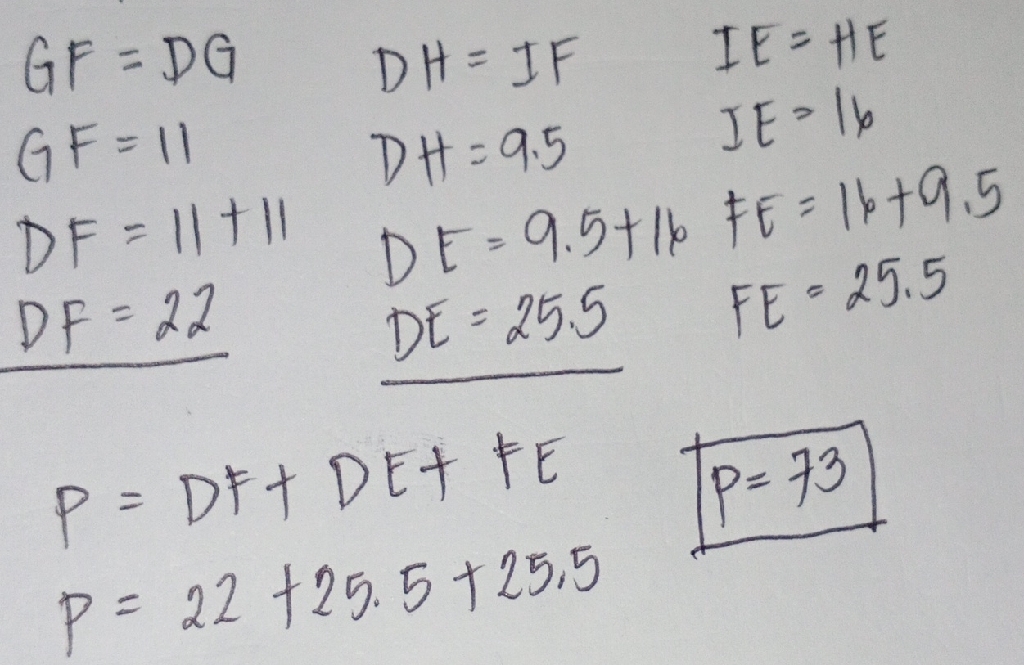 GF = DG
GF = 11
DF = 11 + 11
DF = 22
DH = IF
DH = 9.5
DE = 9.5 + 16
DE = 25.5
IE = HE
IE = 16
FE = 16 + 9.5
FE = 25.5
P = DF + DE + FE
P = 22 + 25.5 + 25.5
P = 73